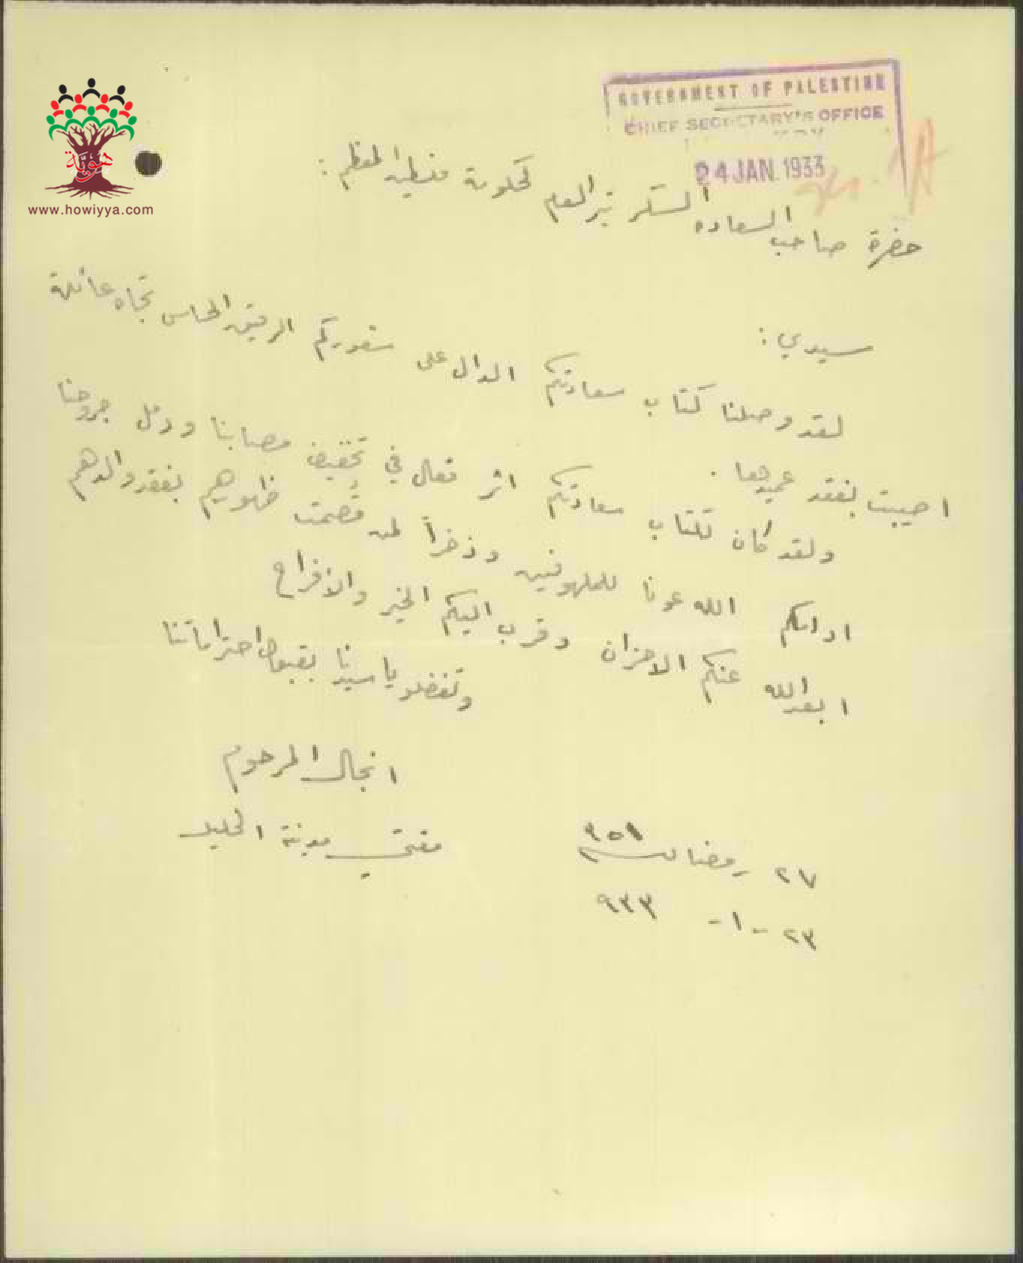 هوية
www.howiyya.com
GOVERNMENT OF PALESTINE
CHIEF SECRETARY'S OFFICE
24 JAN. 1933
حضرة صاحب السعادة السكرتير العام لحكومة فلسطين المعظم :
سيدي :
لقد وصلنا كتاب سعادتكم الدال على شعوركم الرقيق الحساس تجاه عائلة
اصيبت بفقد عميدها .
ولقد كان لكتاب سعادتكم اثر فعال في تخفيف مصابنا ودمل جروحنا
ادامكم الله عونا للملهوفين وذخراً لمن قُصمت ظهورهم بفقد والدهم
ابعد الله عنكم الاحزان وقرب اليكم الخير والأفراح
وتفضلو يا سيدنا بقبول احتراماتنا
انجال المرحوم
مفتي مدينة الخليل
٢٧ رمضان سنة ٣٥١
٢٣ - ١ - ٩٣٣